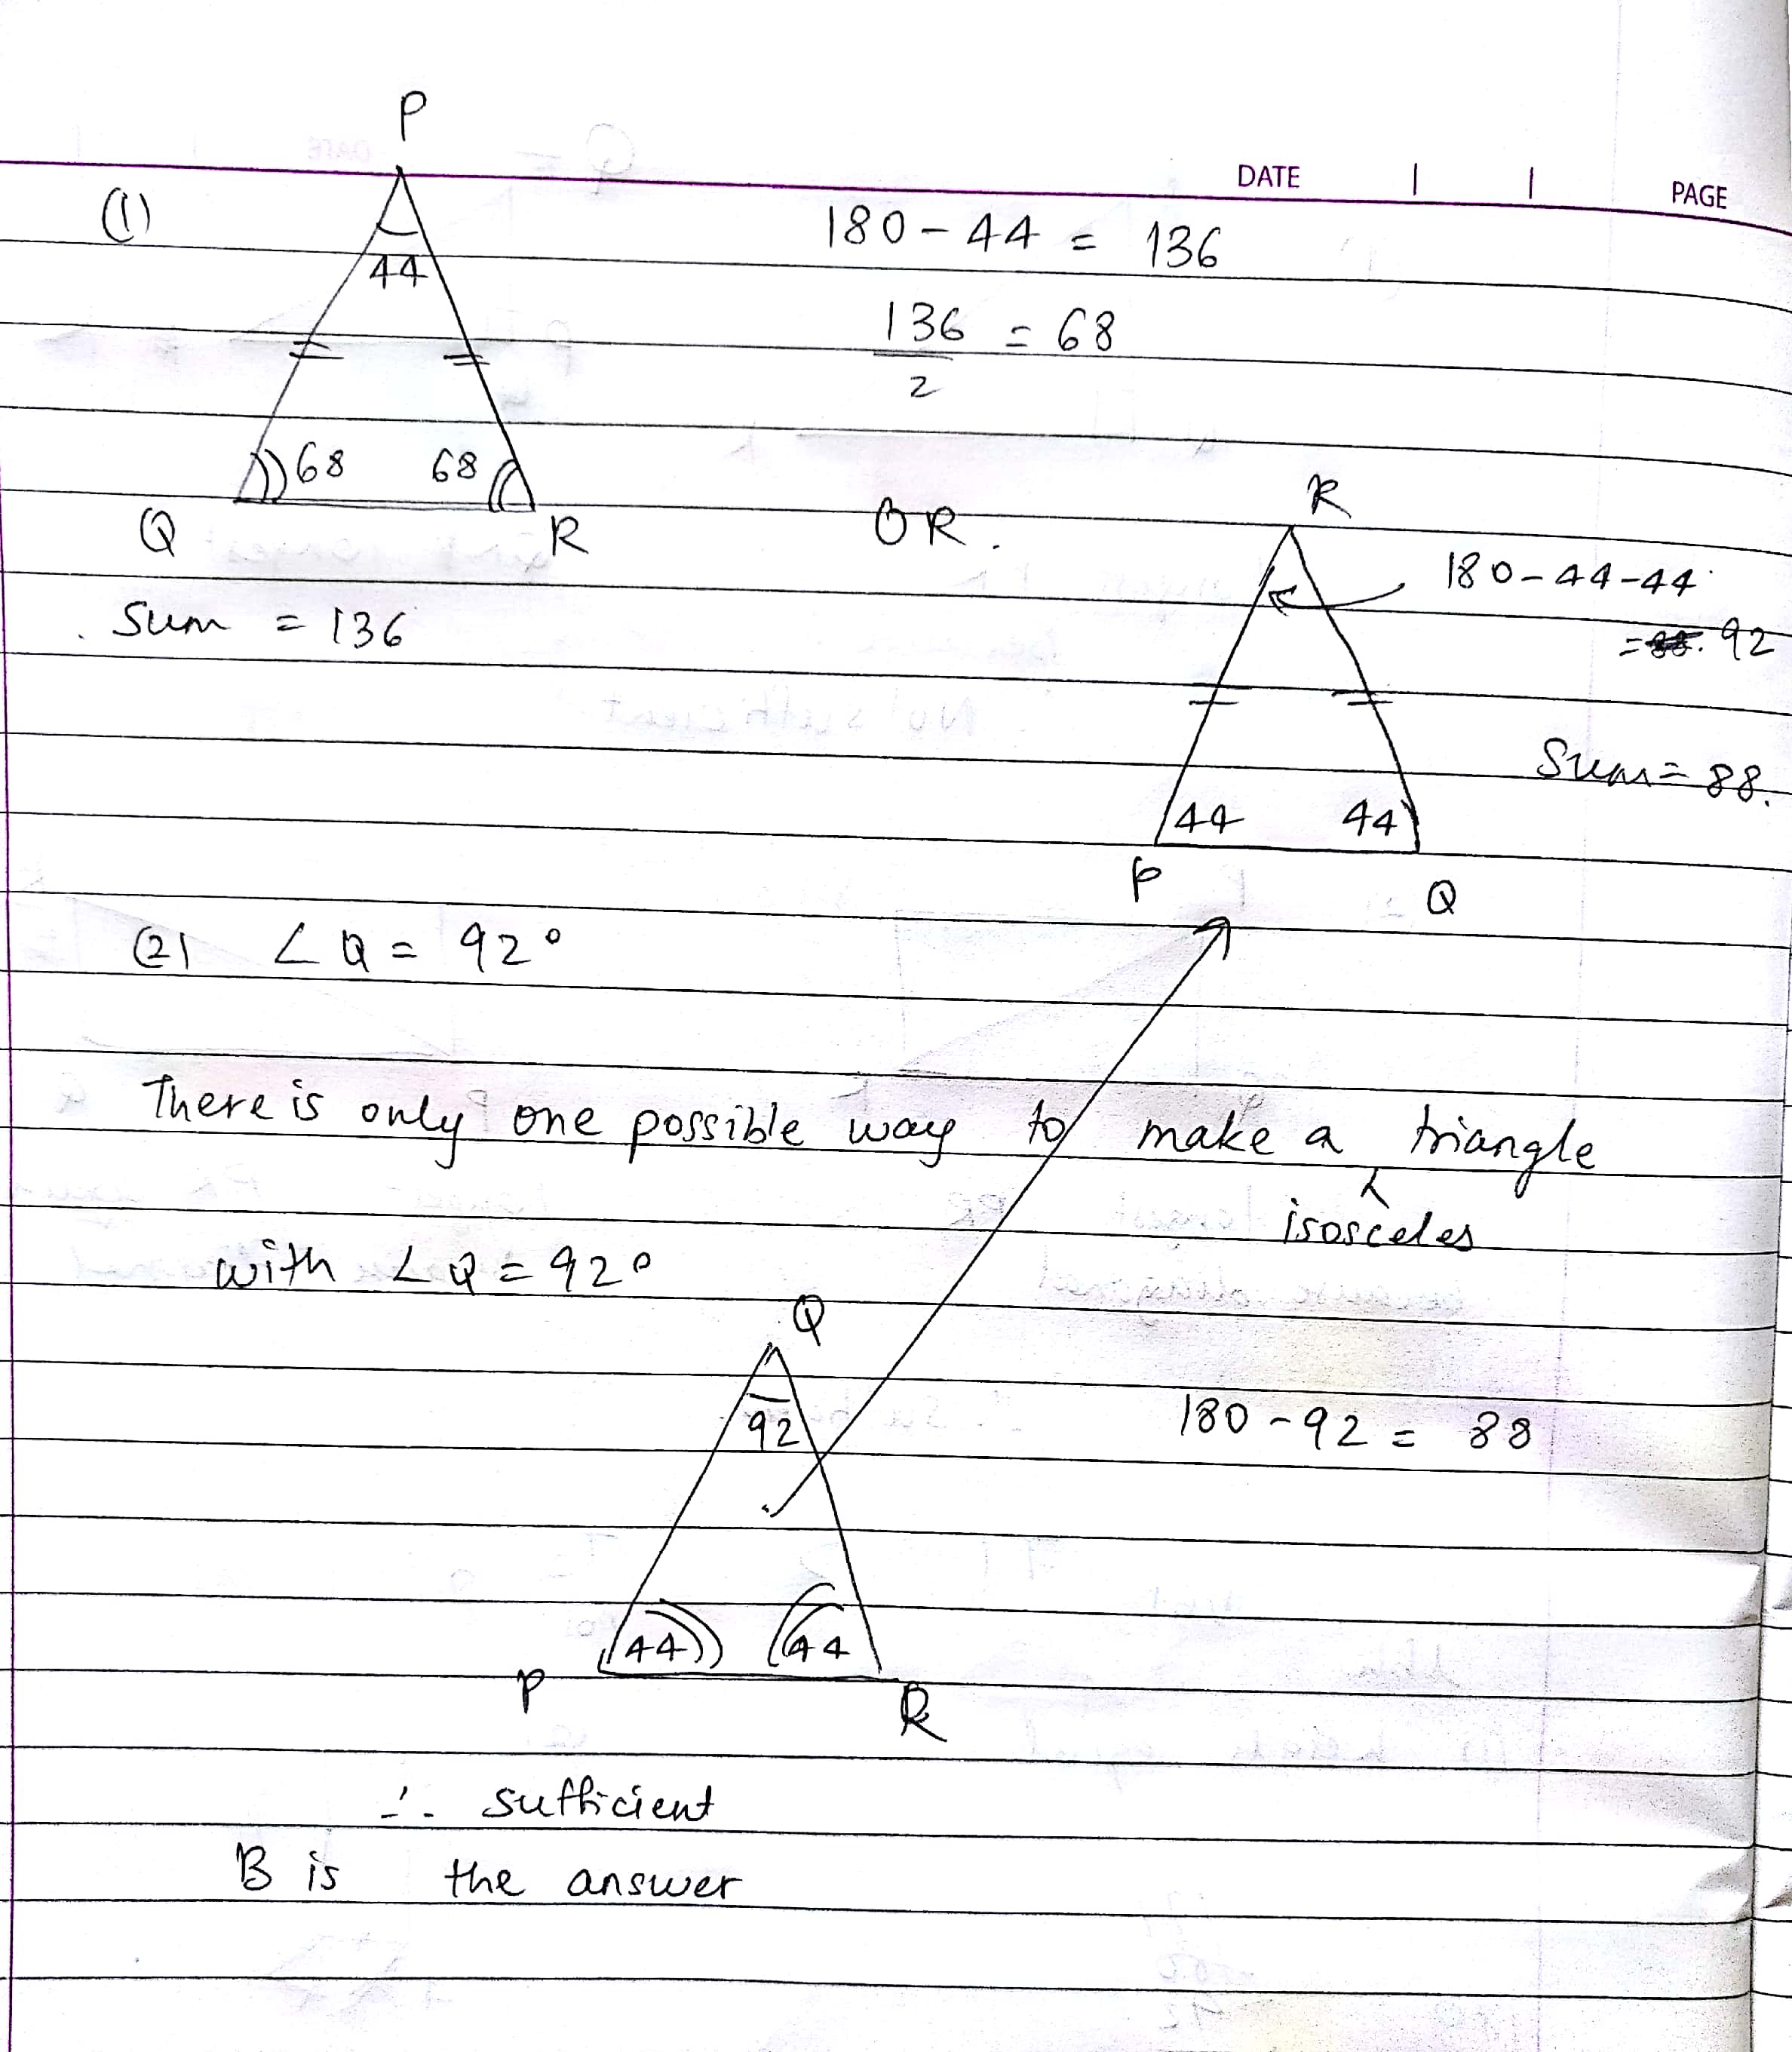 P
DATE
PAGE
(1)
180 - 44 = 136
44
136 = 68
2
68 68
Q R
OR.
R
180-44-44
= 92
Sum = 136
Sum = 88.
44 44
P Q
(2) ∠Q = 92°
There is only one possible way to make a triangle
isosceles
with ∠Q = 92°
Q
92
180 - 92 = 88
44 44
P R
∴ sufficient
B is the answer